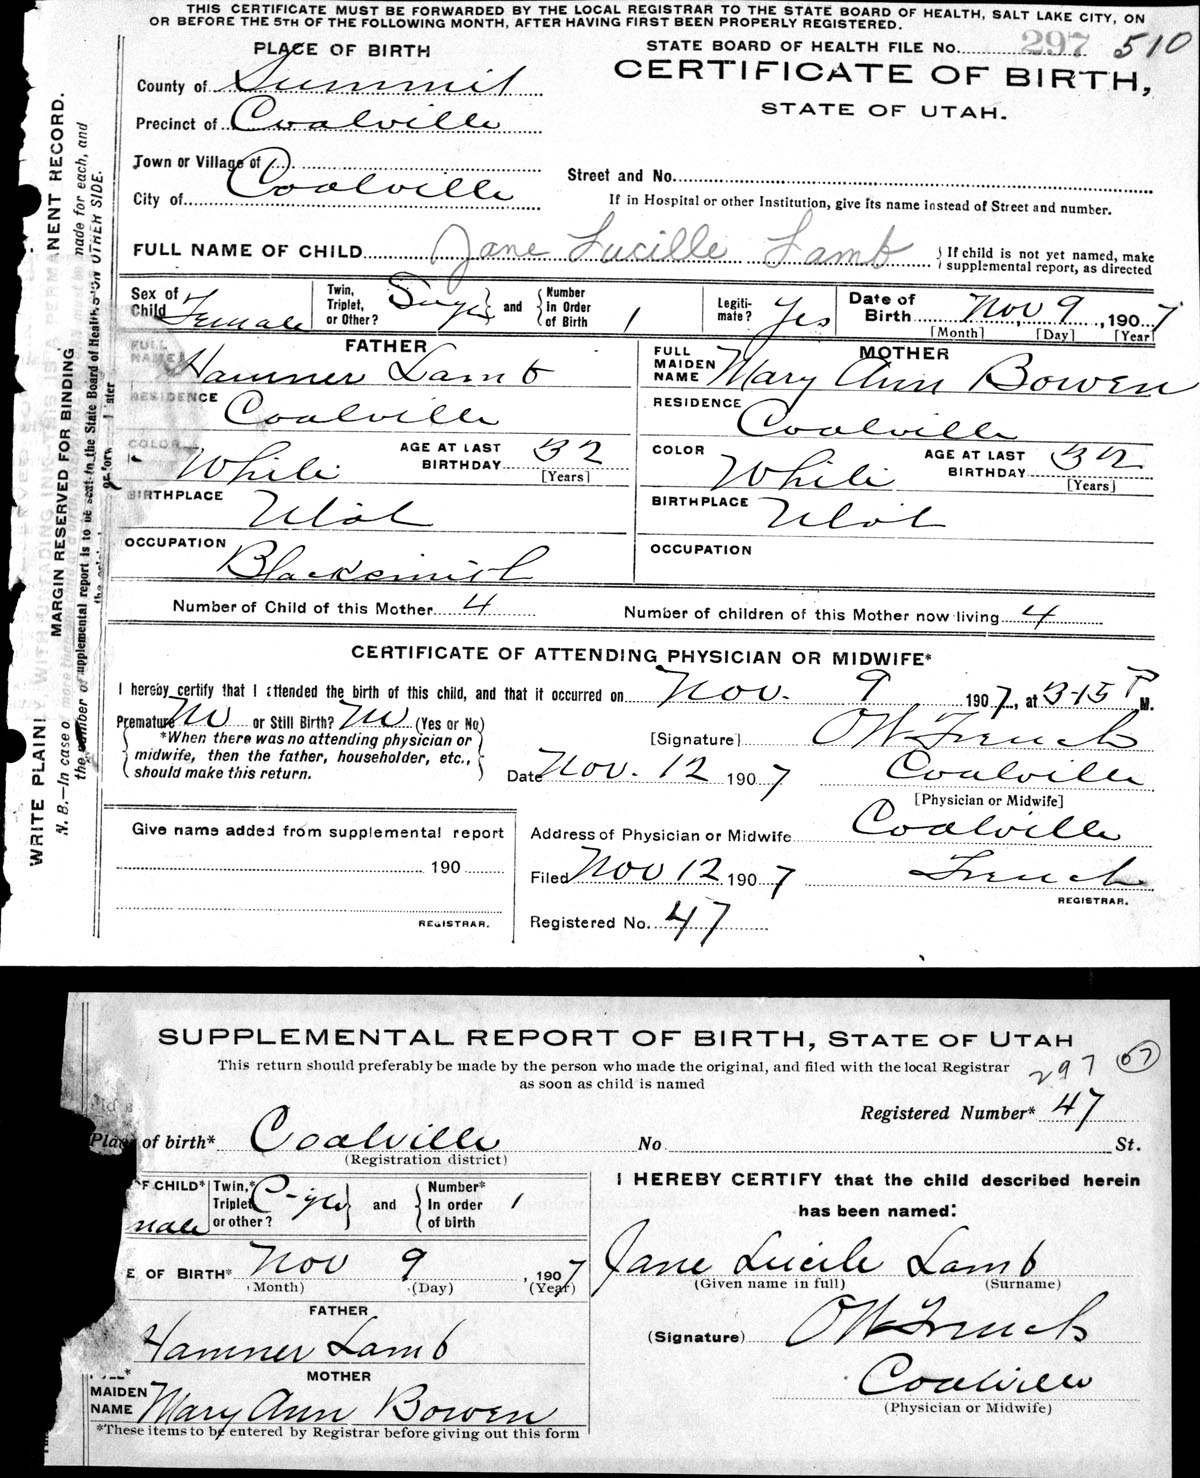 THIS CERTIFICATE MUST BE FORWARDED BY THE LOCAL REGISTRAR TO THE STATE BOARD OF HEALTH, SALT LAKE CITY, ON
OR BEFORE THE 5TH OF THE FOLLOWING MONTH, AFTER HAVING FIRST BEEN PROPERLY REGISTERED.
PLACE OF BIRTH
STATE BOARD OF HEALTH FILE No. 297 510
County of Summit
CERTIFICATE OF BIRTH,
STATE OF UTAH.
Precinct of Coalville
Town or Village of
City of Coalville
Street and No.
If in Hospital or other Institution, give its name instead of Street and number.
FULL NAME OF CHILD Jane Lucille Lamb
If child is not yet named, make
supplemental report, as directed
Sex of Child Female
Twin, Triplet, or Other? and Number In Order of Birth 1
Legiti-mate? Yes
Date of Birth Nov 9, 1907
[Month] [Day] [Year]
FATHER
FULL NAME Hamner Lamb
RESIDENCE Coalville
COLOR White
AGE AT LAST BIRTHDAY 32
[Years]
BIRTHPLACE Utah
OCCUPATION Blacksmith
MOTHER
FULL MAIDEN NAME Mary Ann Bowen
RESIDENCE Coalville
COLOR White
AGE AT LAST BIRTHDAY 32
[Years]
BIRTHPLACE Utah
OCCUPATION
Number of Child of this Mother 4
Number of children of this Mother now living 4
CERTIFICATE OF ATTENDING PHYSICIAN OR MIDWIFE*
I hereby certify that I attended the birth of this child, and that it occurred on Nov. 9 1907, at 3-15 P M.
Premature No or Still Birth? No (Yes or No)
*When there was no attending physician or
midwife, then the father, householder, etc.,
should make this return.
[Signature] O W French
Date Nov. 12 1907
Coalville
[Physician or Midwife]
Give name added from supplemental report
190
REGISTRAR.
Address of Physician or Midwife Coalville
Filed Nov 12 1907 French
REGISTRAR.
Registered No. 47
WRITE PLAINLY WITH FADING INK-THIS IS A PERMANENT RECORD.
MARGIN RESERVED FOR BINDING
N. B.—In case of more than made for each, and
the number of supplemental report is to be sent to the State Board of Health, ON OTHER SIDE.
SUPPLEMENTAL REPORT OF BIRTH, STATE OF UTAH
This return should preferably be made by the person who made the original, and filed with the local Registrar
as soon as child is named
297 07
Registered Number* 47
Place of birth* Coalville No. St.
(Registration district)
OF CHILD* male
Twin,* Triplet or other? and Number* In order of birth 1
E OF BIRTH* Nov 9, 1907
(Month) (Day) (Year)
FATHER
Hamner Lamb
MOTHER
MAIDEN NAME Mary Ann Bowen
*These items to be entered by Registrar before giving out this form
I HEREBY CERTIFY that the child described herein
has been named:
Jane Lucile Lamb
(Given name in full) (Surname)
(Signature) O W French
Coalville
(Physician or Midwife)